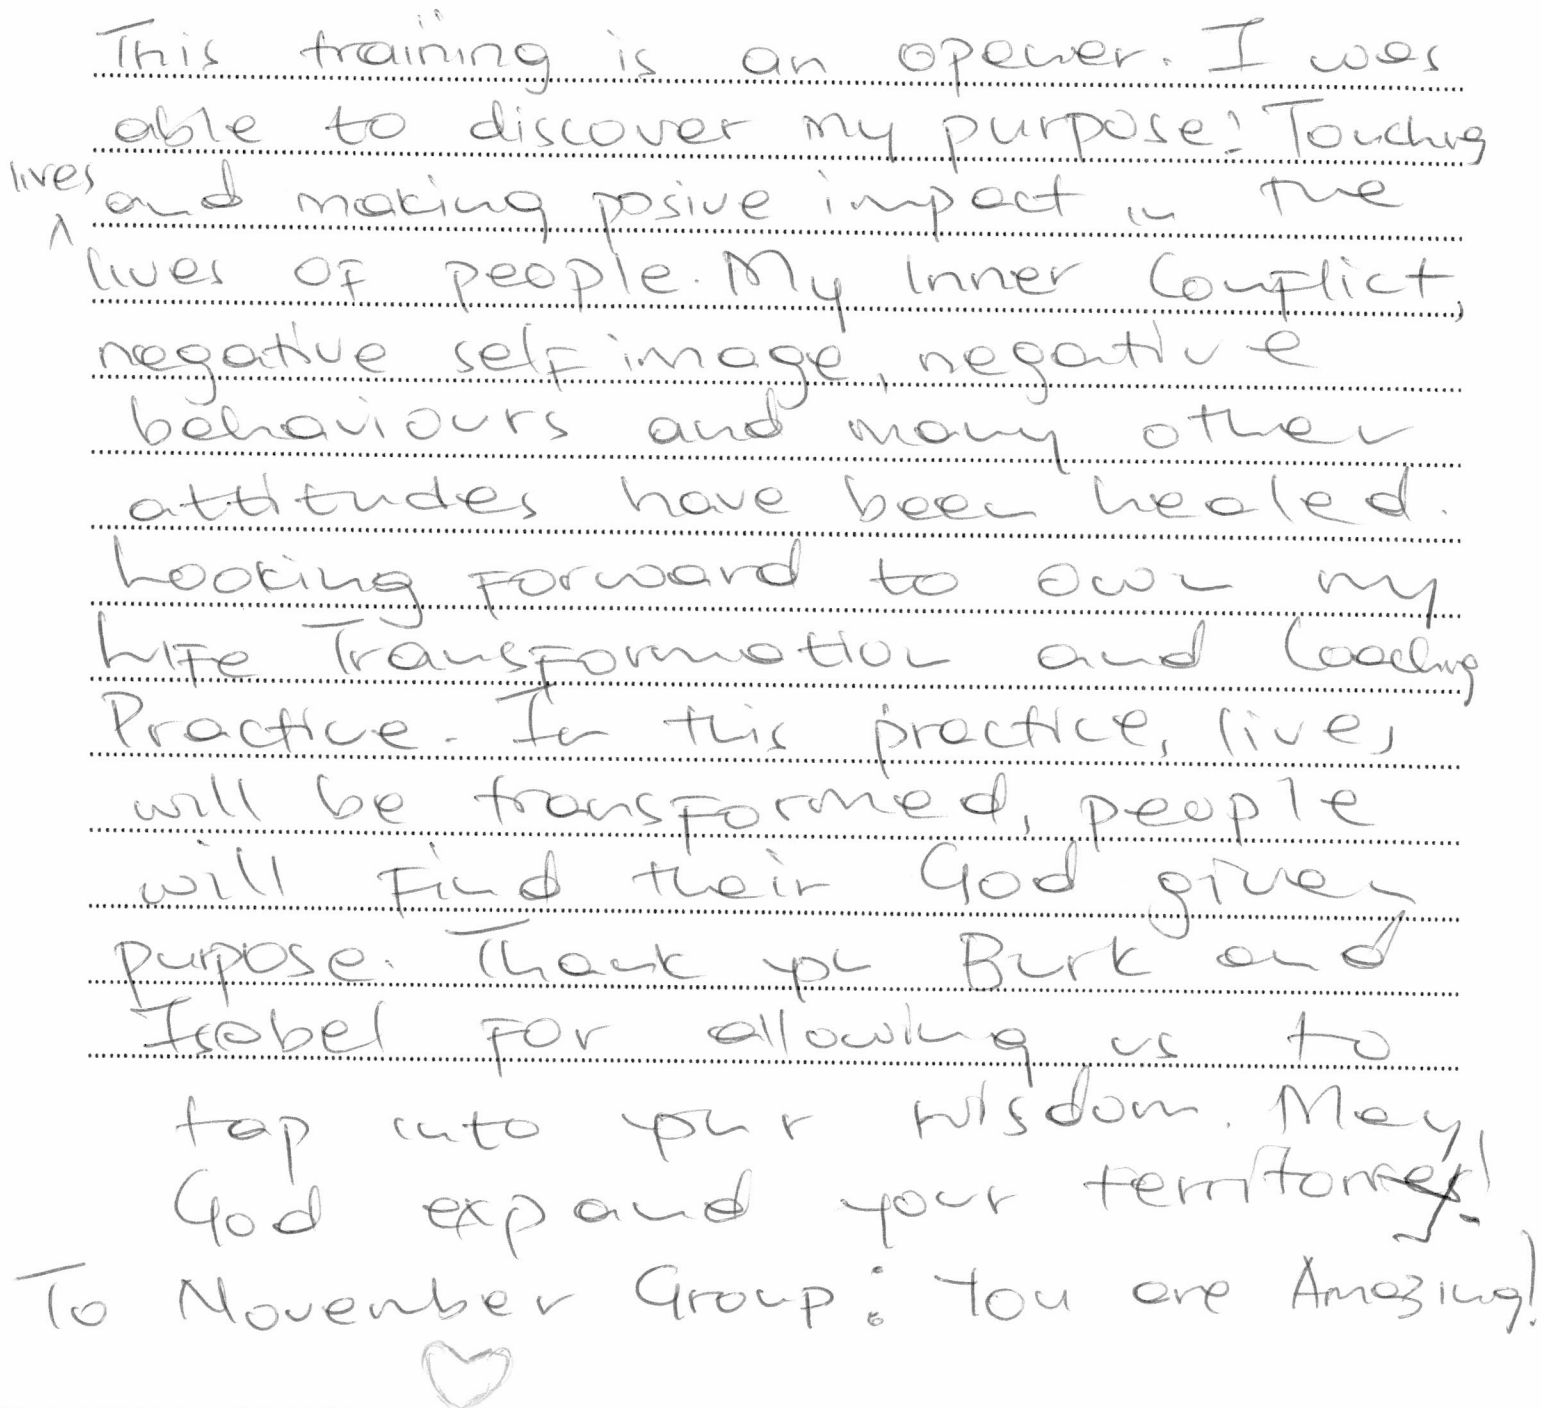 This training is an opener. I was
able to discover my purpose! Touching
lives and making posive impact in the
lives of people. My Inner Conflict,
negative self image, negative
behaviours and many other
attitudes have been healed.
Looking forward to own my
Life Transformation and Coaching
Practice. In this practice, lives
will be transformed, people
will find their God given
purpose. Thank you Burk and
Isobel for allowing us to
tap into your wisdom. May
God expand your territories!
To November Group: You are Amazing!